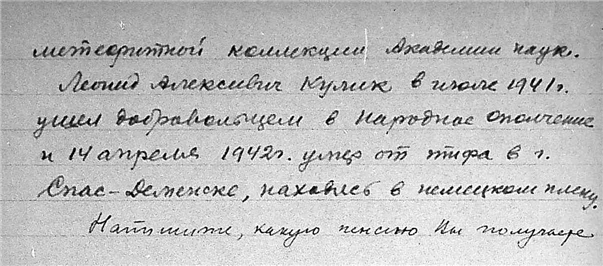 метеоритной коллекции Академии наук.
Леонид Алексеевич Кулик в июле 1941г.
ушел добровольцем в Народное ополчение
и 14 апреля 1942г. умер от тифа в г.
Спас-Деменске, находясь в немецком плену.
Напишите, какую пенсию Вы получаете